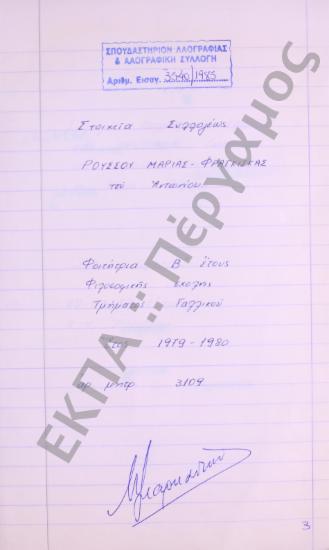 ΣΠΟΥΔΑΣΤΗΡΙΟΝ ΛΑΟΓΡΑΦΙΑΣ
& ΛΑΟΓΡΑΦΙΚΗ ΣΥΛΛΟΓΗ
Αριθμ. Εισαγ. 3540/1985
Στοιχεία Συλλογέως
ΡΟΥΣΣΟΥ ΜΑΡΙΑΣ - ΦΡΑΓΚΙΣΚΑΣ
του Αντωνίου
Φοιτήτρια Β έτους
Φιλοσοφικής Σχολής
Τμήματος Γαλλικού
Έτος 1979 - 1980
αρ. μητρ 3109
3
ΕΚΠΑ :: Πέργαμος